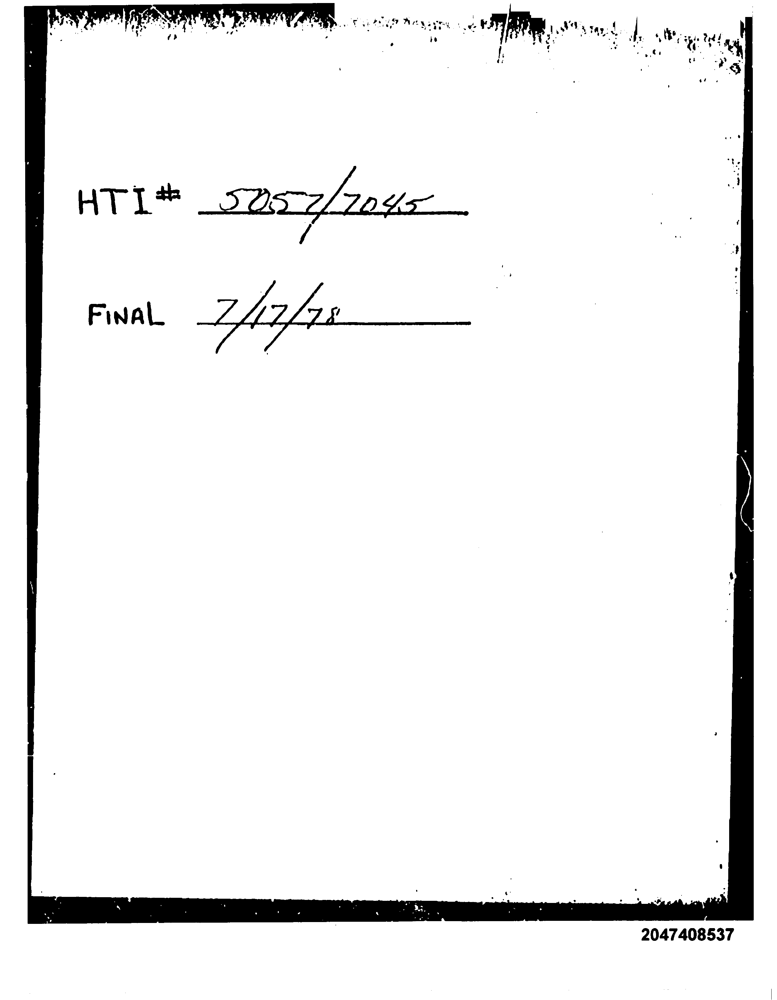 HTI# 5057/7045
FINAL 7/17/78
2047408537